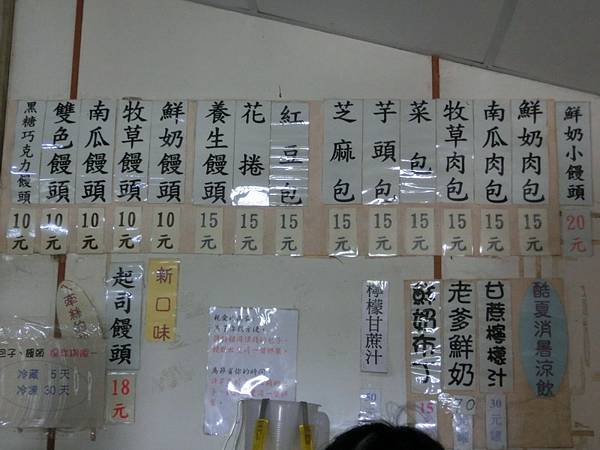 黑糖巧克力饅頭 10元
雙色饅頭 10元
南瓜饅頭 10元
牧草饅頭 10元
鮮奶饅頭 10元
養生饅頭 15元
花捲 15元
紅豆包 15元
芝麻包 15元
芋頭包 15元
菜包 15元
牧草肉包 15元
南瓜肉包 15元
鮮奶肉包 15元
鮮奶小饅頭 20元
包子、饅頭
冷藏 5天
冷凍 30天
起司饅頭 18元
新口味
檸檬甘蔗汁
鮮奶布丁 15
老爹鮮奶 70
甘蔗檸檬汁 30元罐
酷夏消暑涼飲